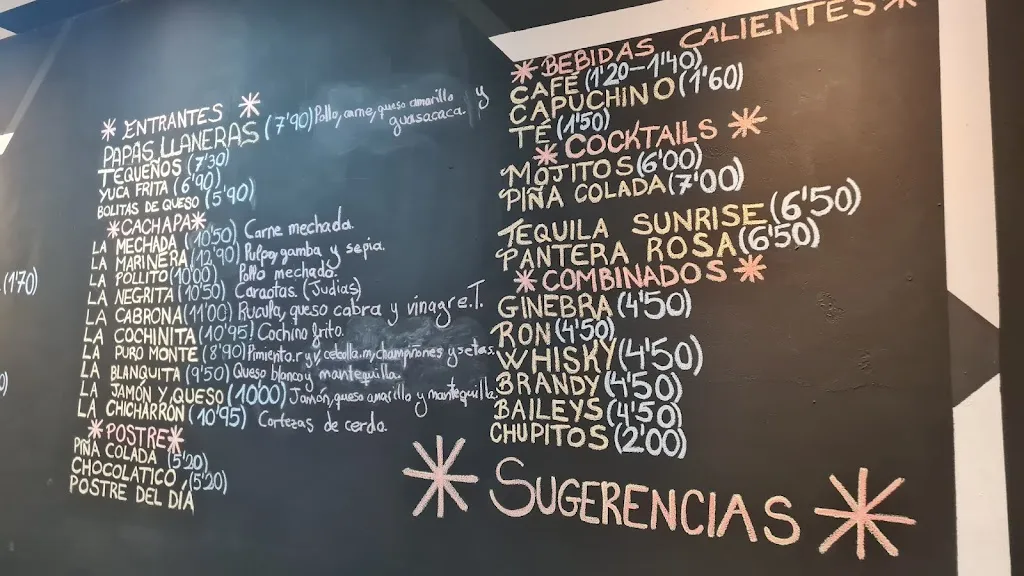 * ENTRANTES *
PAPAS LLANERAS (7'90) Pollo, carne, queso amarillo y
guasacaca.
TEQUEÑOS (7'30)
YUCA FRITA (6'90)
BOLITAS DE QUESO (5'90)
*CACHAPA*
LA MECHADA (10'50) Carne mechada.
LA MARINERA (12'90) Pulpo, gamba y sepia.
LA POLLITO (10'00) Pollo mechado.
LA NEGRITA (10'50) Caraotas. (Judias)
LA CABRONA (11'00) Rucula, queso cabra y vinagre.T.
LA COCHINITA (10'95) Cochino frito.
LA PURO MONTE (8'90) Pimiento.r y v, cebolla.m, champiñones y setas.
LA BLANQUITA (9'50) Queso blanco y mantequilla.
LA JAMÓN Y QUESO (10'00) Jamón, queso amarillo y mantequilla.
LA CHICHARRÓN (10'95) Cortezas de cerdo.
*POSTRE*
PIÑA COLADA (5'20)
CHOCOLATICO (5'20)
POSTRE DEL DIA
(1'70)
* BEBIDAS CALIENTES *
CAFÉ (1'20-1'40)
CAPUCHINO (1'60)
TÉ (1'50)
* COCKTAILS *
MOJITOS (6'00)
PIÑA COLADA (7'00)
TEQUILA SUNRISE (6'50)
PANTERA ROSA (6'50)
* COMBINADOS *
GINEBRA (4'50)
RON (4'50)
WHISKY (4'50)
BRANDY (4'50)
BAILEYS (4'50)
CHUPITOS (2'00)
* SUGERENCIAS *